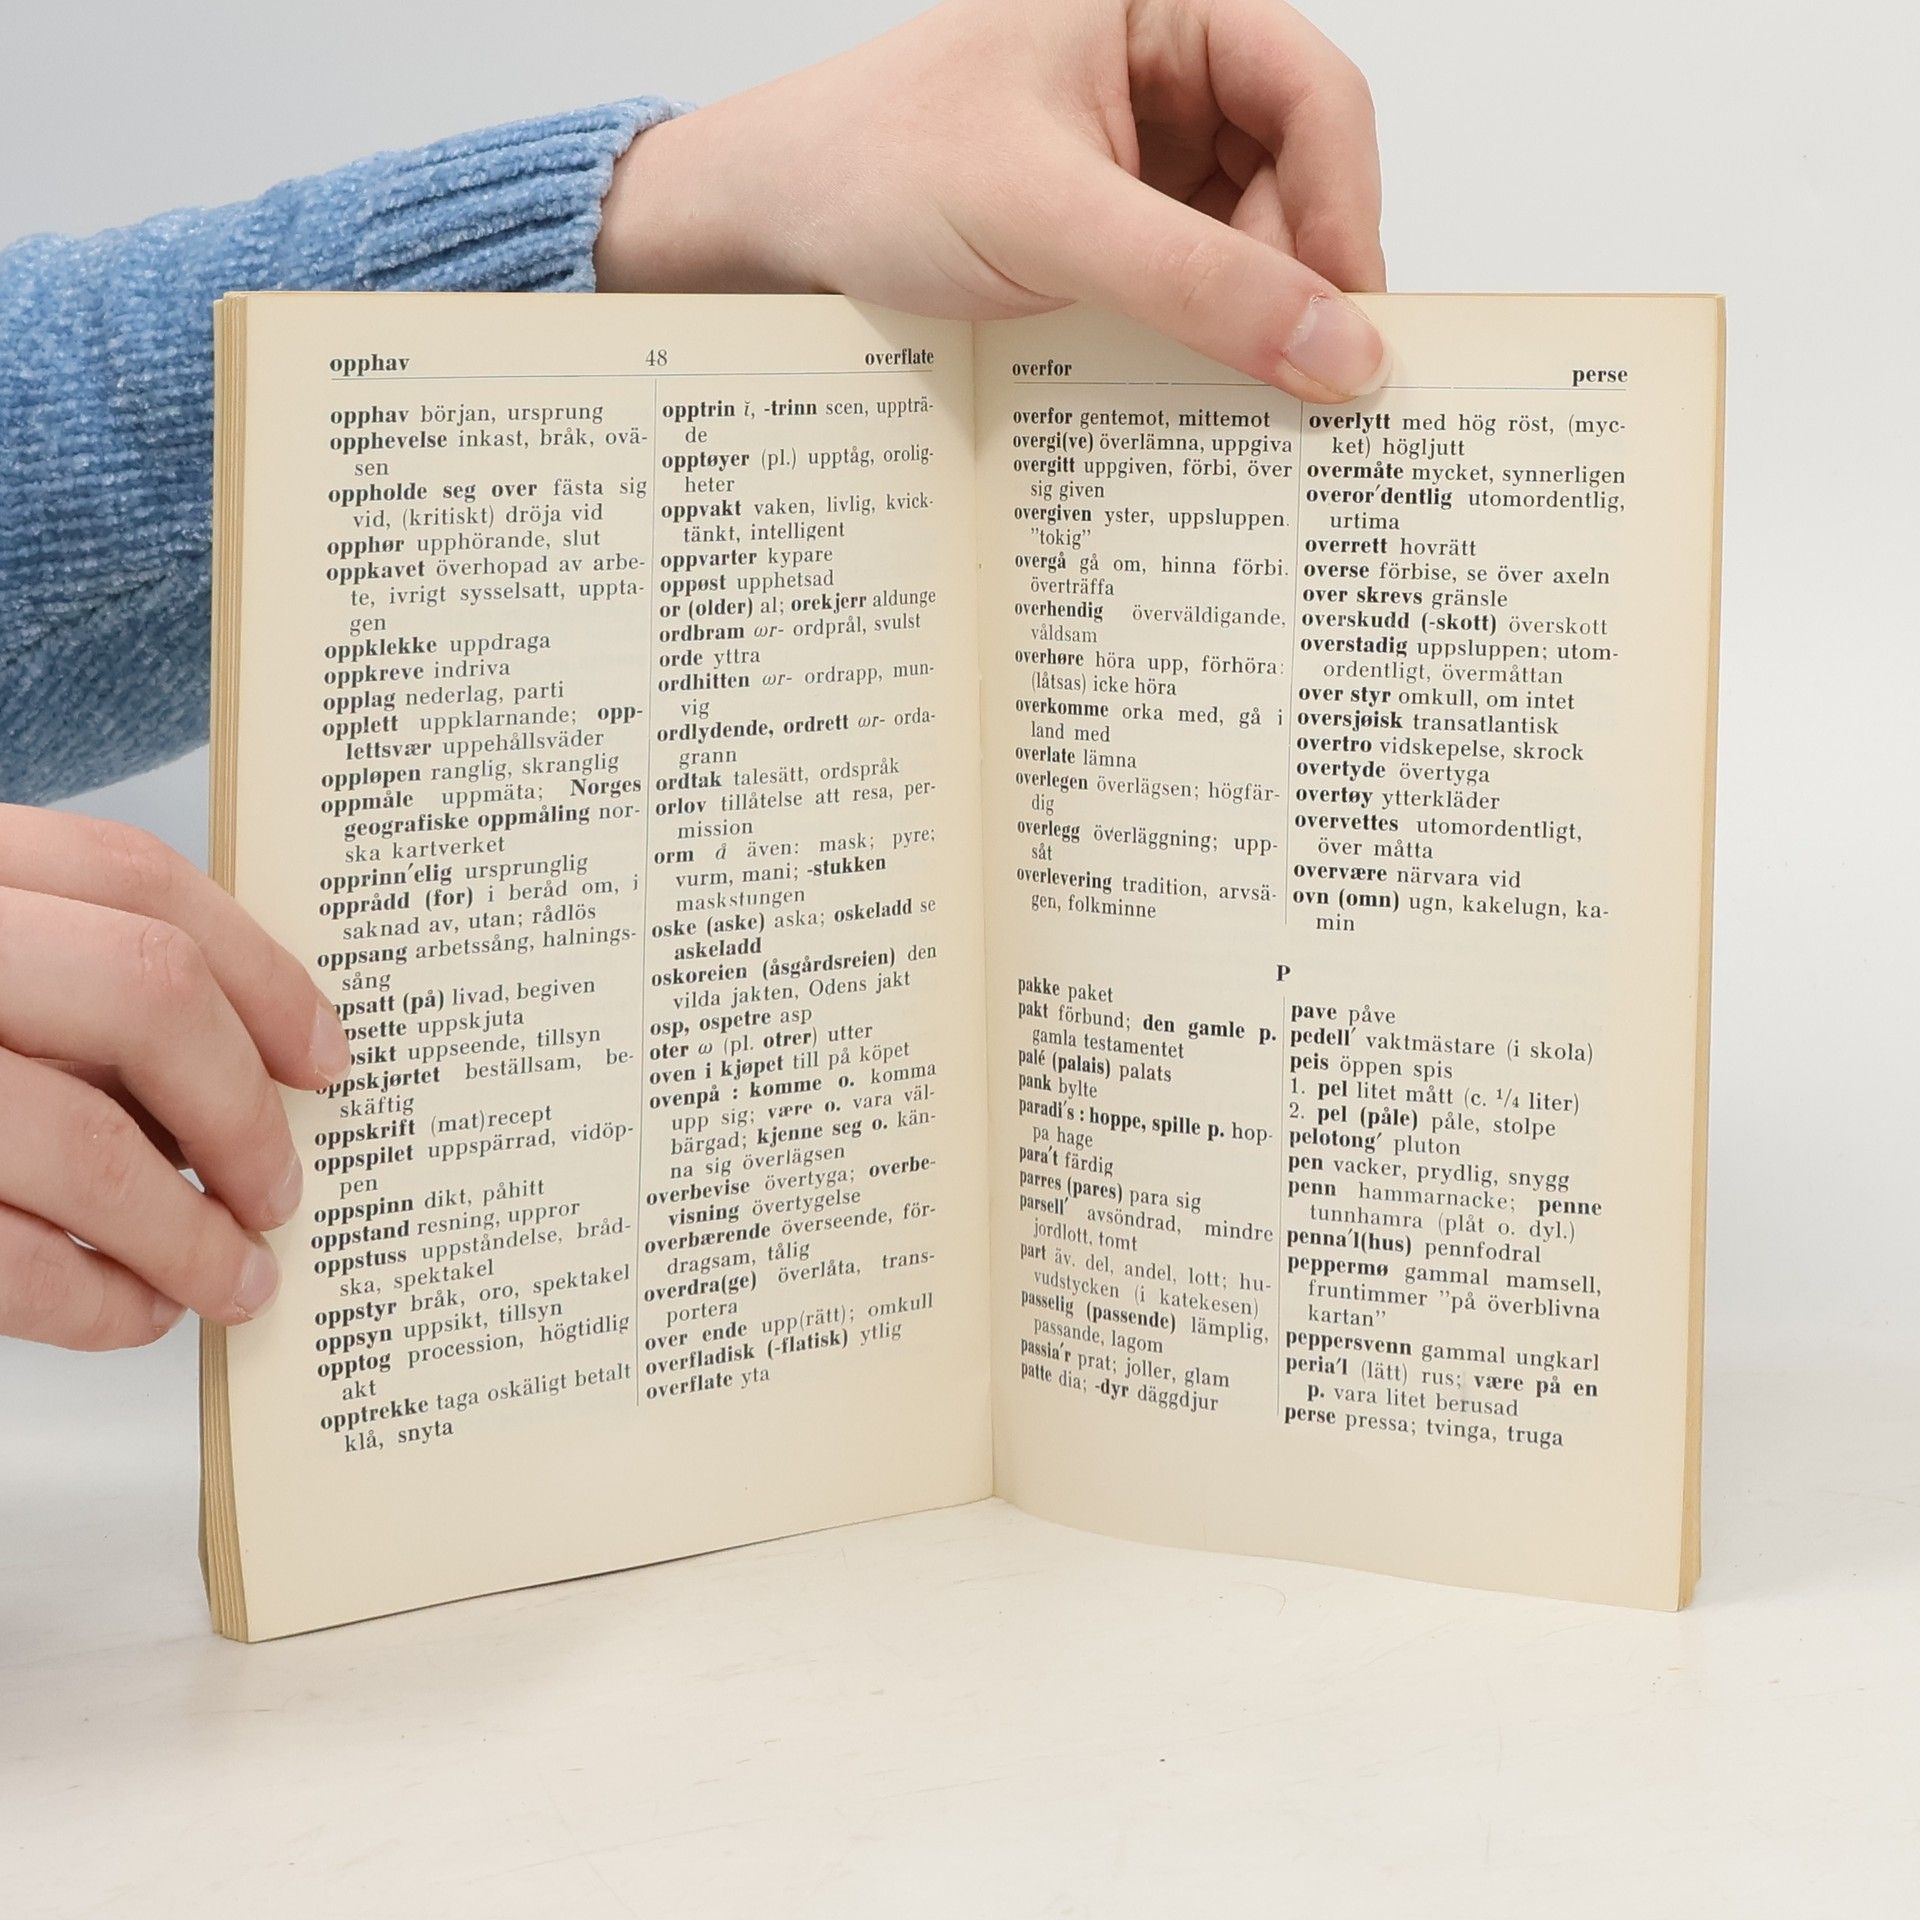 opphav 48 overflate
opphav början, ursprung
opphevelse inkast, bråk, ovä-
sen
oppholde seg over fästa sig
vid, (kritiskt) dröja vid
opphør upphörande, slut
oppkavet överhopad av arbe-
te, ivrigt sysselsatt, uppta-
gen
oppklekke uppdraga
oppkreve indriva
opplag nederlag, parti
opplett uppklarnande; opp-
lettsvær uppehållsväder
oppløpen ranglig, skranglig
oppmåle uppmäta; Norges
geografiske oppmåling nor-
ska kartverket
opprinn′elig ursprunglig
opprådd (for) i beråd om, i
saknad av, utan; rådlös
oppsang arbetssång, halnings-
sång
ppsatt (på) livad, begiven
psette uppskjuta
sikt uppseende, tillsyn
oppskjørtet beställsam, be-
skäftig
oppskrift (mat)recept
oppspilet uppspärrad, vidöp-
pen
oppspinn dikt, påhitt
oppstand resning, uppror
oppstuss uppståndelse, bråd-
ska, spektakel
oppstyr bråk, oro, spektakel
oppsyn uppsikt, tillsyn
opptog procession, högtidlig
akt
opptrekke taga oskäligt betalt
klå, snyta
opptrin ĭ, -trinn scen, uppträ-
de
opptøyer (pl.) upptåg, orolig-
heter
oppvakt vaken, livlig, kvick-
tänkt, intelligent
oppvarter kypare
oppøst upphetsad
or (older) al; orekjerr aldunge
ordbram ωr- ordprål, svulst
orde yttra
ordhitten ωr- ordrapp, mun-
vig
ordlydende, ordrett ωr- orda-
grann
ordtak talesätt, ordspråk
orlov tillåtelse att resa, per-
mission
orm å även: mask; pyre;
vurm, mani; -stukken
maskstungen
oske (aske) aska; oskeladd se
askeladd
oskoreien (åsgårdsreien) den
vilda jakten, Odens jakt
osp, ospetre asp
oter ω (pl. otrer) utter
oven i kjøpet till på köpet
ovenpå : komme o. komma
upp sig; være o. vara väl-
bärgad; kjenne seg o. kän-
na sig överlägsen
overbevise övertyga; overbe-
visning övertygelse
overbærende överseende, för-
dragsam, tålig
overdra(ge) överlåta, trans-
portera
over ende upp(rätt); omkull
overfladisk (-flatisk) ytlig
overflate yta
overfor perse
overfor gentemot, mittemot
overgi(ve) överlämna, uppgiva
overgitt uppgiven, förbi, över
sig given
overgiven yster, uppsluppen.
"tokig"
overgå gå om, hinna förbi.
överträffa
overhendig överväldigande,
våldsam
overhøre höra upp, förhöra:
(låtsas) icke höra
overkomme orka med, gå i
land med
overlate lämna
overlegen överlägsen; högfär-
dig
overlegg överläggning; upp-
såt
overlevering tradition, arvsä-
gen, folkminne
overlytt med hög röst, (myc-
ket) högljutt
overmåte mycket, synnerligen
overor′dentlig utomordentlig,
urtima
overrett hovrätt
overse förbise, se över axeln
over skrevs gränsle
overskudd (-skott) överskott
overstadig uppsluppen; utom-
ordentligt, övermåttan
over styr omkull, om intet
oversjøisk transatlantisk
overtro vidskepelse, skrock
overtyde övertyga
overtøy ytterkläder
overvettes utomordentligt,
över måtta
overvære närvara vid
ovn (omn) ugn, kakelugn, ka-
min
P
pakke paket
pakt förbund; den gamle p.
gamla testamentet
palé (palais) palats
pank bylte
paradi′s : hoppe, spille p. hop-
pa hage
para′t färdig
parres (pares) para sig
parsell′ avsöndrad, mindre
jordlott, tomt
part äv. del, andel, lott; hu-
vudstycken (i katekesen)
passelig (passende) lämplig,
passande, lagom
passia′r prat; joller, glam
patte dia; -dyr däggdjur
pave påve
pedell′ vaktmästare (i skola)
peis öppen spis
1. pel litet mått (c. 1/4 liter)
2. pel (påle) påle, stolpe
pelotong′ pluton
pen vacker, prydlig, snygg
penn hammarnacke; penne
tunnhamra (plåt o. dyl.)
penna′l(hus) pennfodral
peppermø gammal mamsell,
fruntimmer "på överblivna
kartan"
peppersvenn gammal ungkarl
peria′l (lätt) rus; være på en
p. vara litet berusad
perse pressa; tvinga, truga